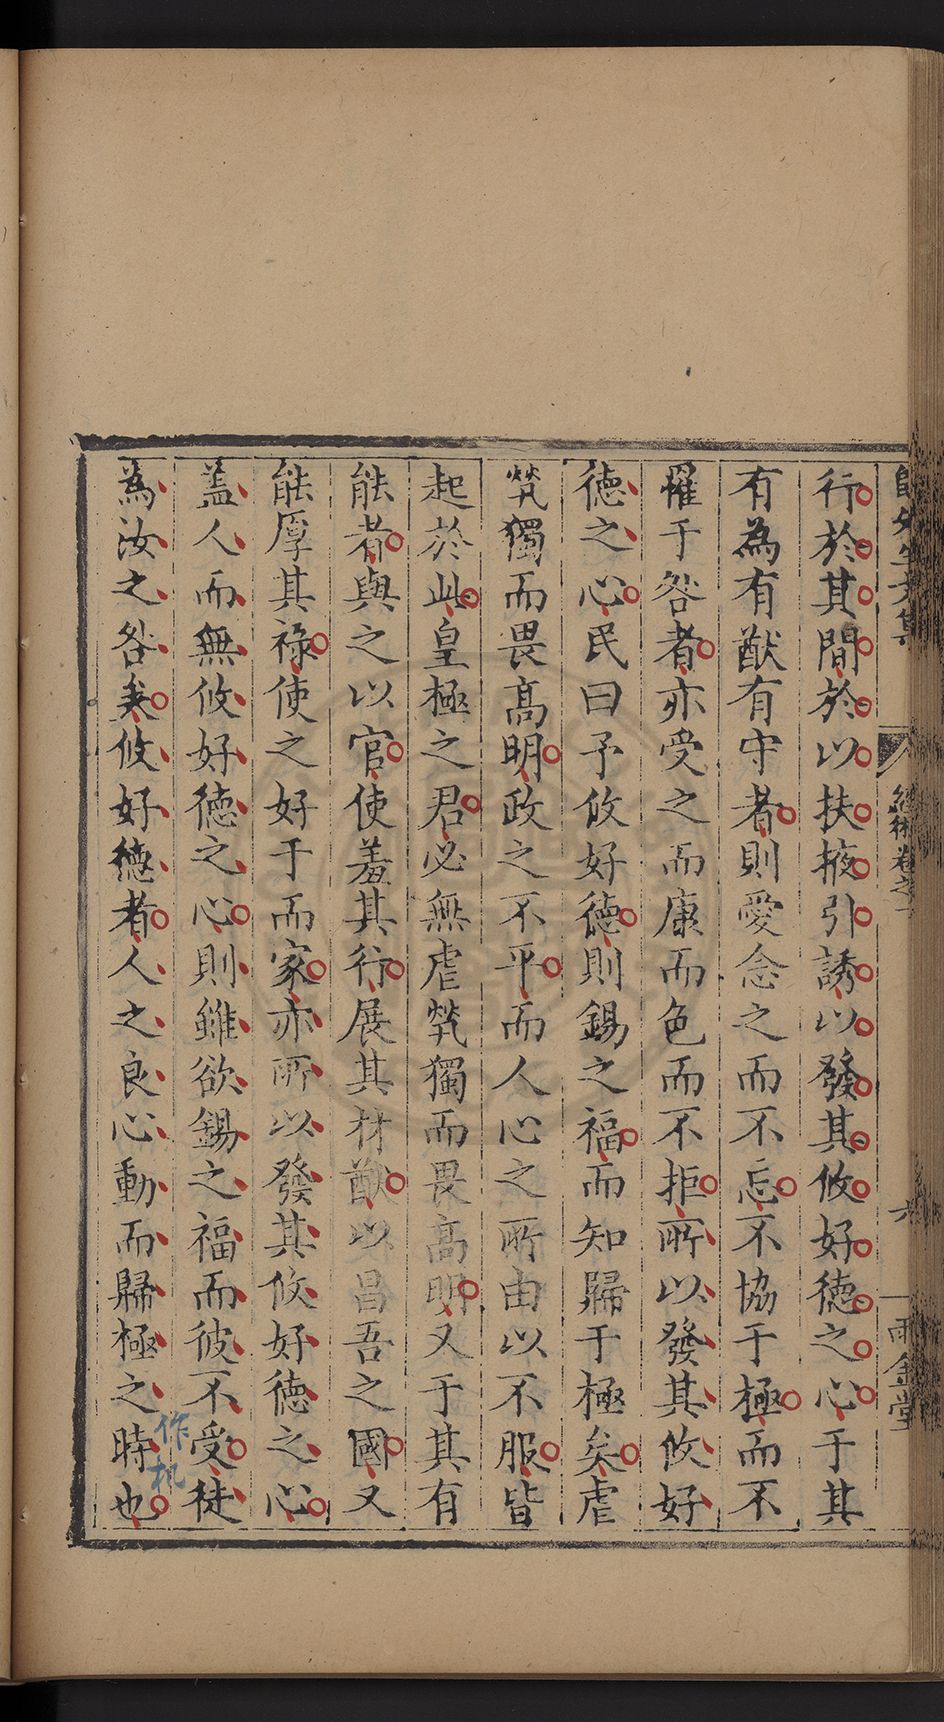 行於其間於以扶掖引誘以發其攸好德之心于其
有為有猷有守者則愛念之而不忘不協于極而不
罹于咎者亦受之而康而色而不拒所以發其攸好
德之心民曰予攸好德則錫之福而知歸于極矣虐
煢獨而畏高明政之不平而人心之所由以不服皆
起於此皇極之君必無虐煢獨而畏高明又于其有
能者與之以官使羞其行展其材猷以昌吾之國又
能厚其祿使之好于而家亦所以發其攸好德之心
蓋人而無攸好德之心則雖欲錫之福而彼不受徒
為汝之咎矣攸好德者人之良心動而歸極之時也
作机
卷之
六
雨金堂